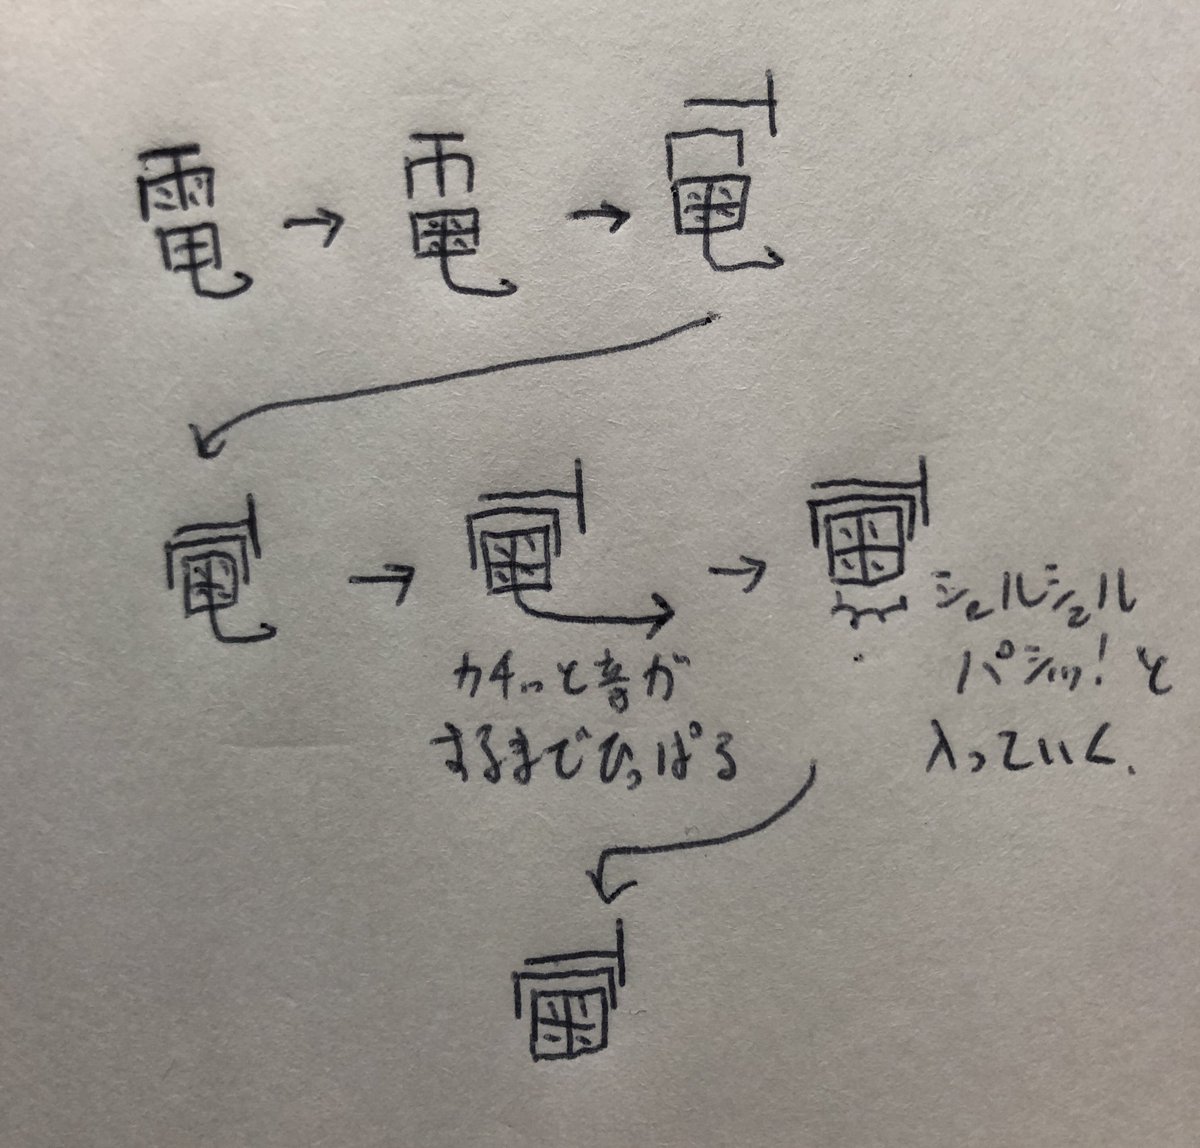 電 → 電 →
カチッと音が
するまでひっぱる
シュルシュル
パシッ！と
入っていく.